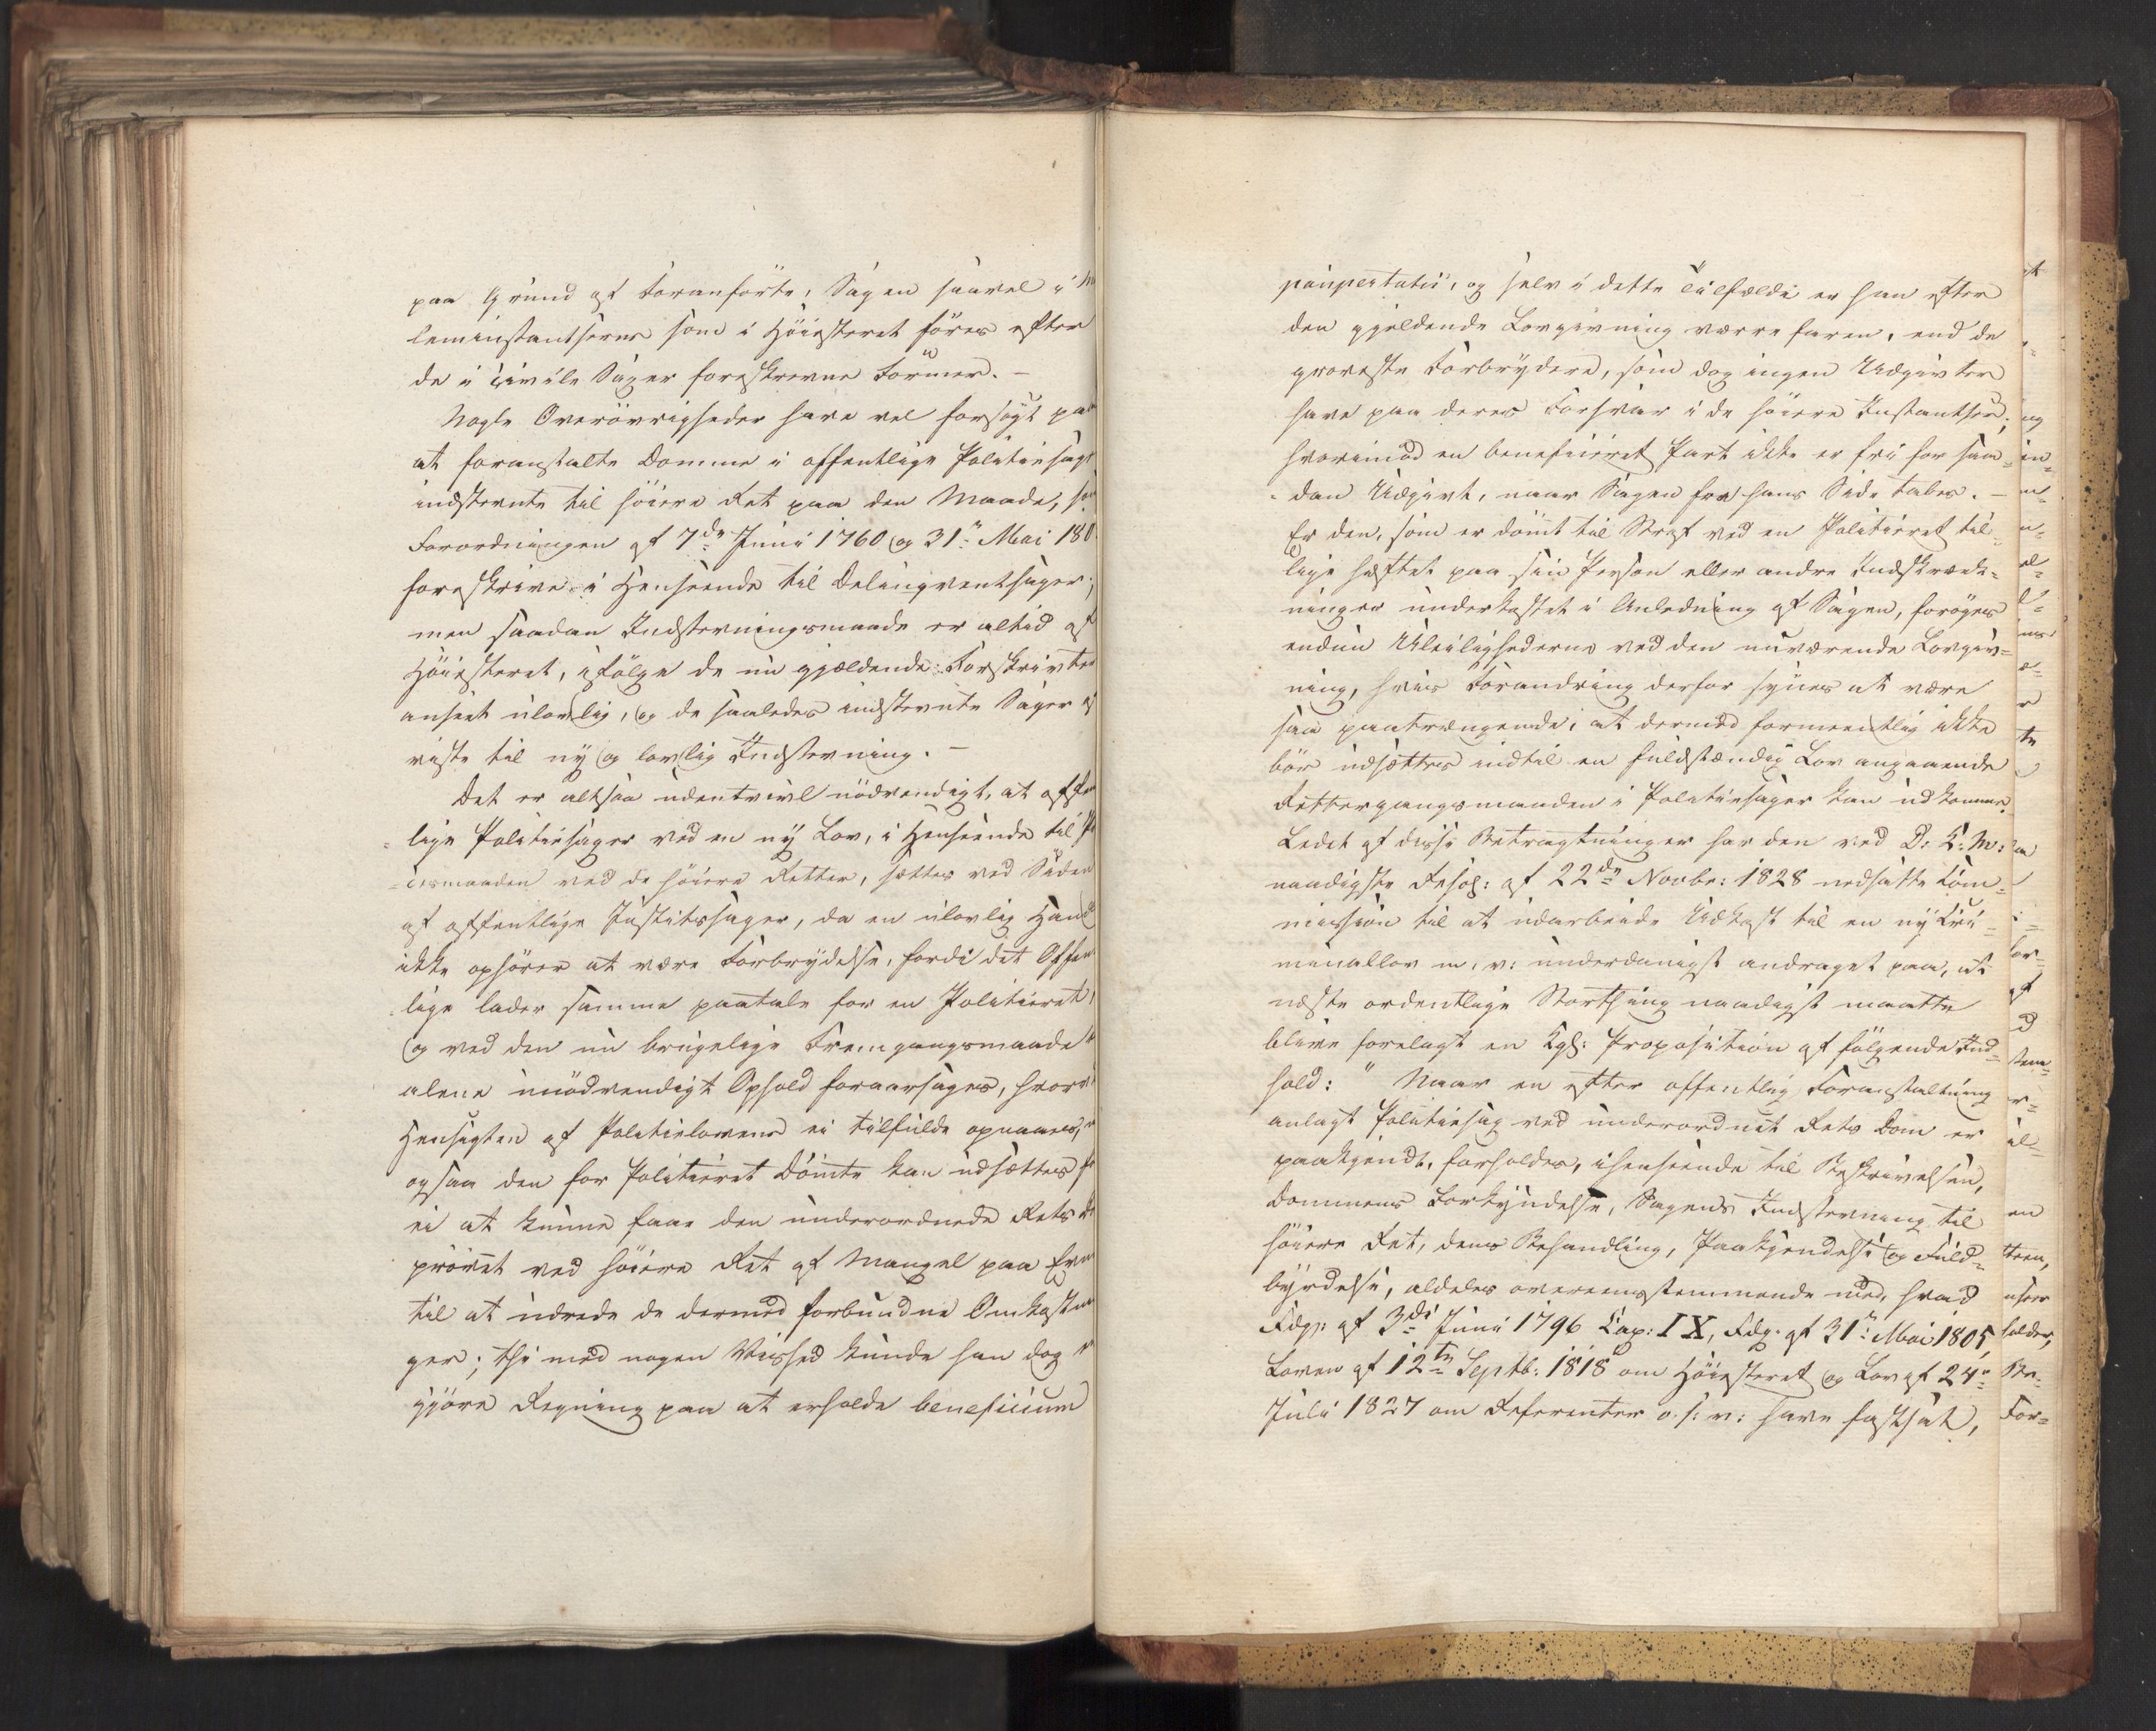 paa Grund af Foranførte, Sagen saavel i
leminstantserne som i Höiesteret föres efter
de i civile Sager foreskrevne Former. –
Nogle Overövrigheder have vel forsøgt paa
at foranstalte Domme i offentlige Politiesag
indstevnte til höiere Ret paa den Maade, som
Forordningen af 7de Juni 1760 og 31te Mai 180
foreskrive i Henseende til Delinqventsager;
men saadan Indstevningsmaade er altid af
Höiesteret, ifölge de nu gjældende Forskrivter
anseet ulovlig, og de saaledes indstevnte Sager
viste til ny og lovlig Indstevning. –
Det er altsaa udentvivl nödvendigt, at offent
lige Politiesager ved en ny Lov, i Henseende til
cesmaaden ved de höiere Retter, sættes ved Siden
af offentlige Justitssager, da en ulovlig Hand
ikke ophörer at være Forbrydelse, fordi det Offent
lige lader samme paatale for en Politieret,
og ved den nu brugelige Fremgangsmaade
alene unödvendigt Ophold foraarsages, hvorved
Hensigten af Politielovene ei tilfulde opnaaes,
ogsaa den for Politieret Dömte kan udsættes for
ei at kunne faae den underordnede Rets
prövet ved höiere Ret af Mangel paa Evne
til at udrede de dermed forbundne Omkostnin
ger; thi med nogen Vished kunde han dog
gjöre Regning paa at erholde beneficium
paupertatis, og selv i dette Tilfælde er han efter
den gjeldende Lovgivning værre faren, end de
groveste Forbrydere, som dog ingen Udgivter
have paa deres Forsvar i de höiere Instantser;
hvorimod en beneficieret Part ikke er fri for saa=
dan Udgivt, naar Sagen fra hans Side tabes. –
Er den, som er dömt til Straf ved en Politieret til=
lige hæftet paa sin Person eller andre Indskrænk=
ninger underkastet i Anledning af Sagen, forøges
endnu Uleilighederne ved den nuværende Lovgiv=
ning, hvis Forandring derfor synes at være
saa paatrængende, at dermed formeentlig ikke
bör udsættes indtil en fuldstændig Lov angaaende
Rettergangsmaaden i Politiesager kan udkomme.
Ledet af disse Betragtninger har den ved D: K: M:
naadigste Resol: af 22de Novbr: 1828 nedsatte Com=
mission til at udarbeide Udkast til en ny Cri=
minallov m: v: underdanigst andraget paa, at
næste ordentlige Storthing naadigst maatte
blive forelagt en Kgl: Proposition af fölgende Ind=
hold: " Naar en efter offentlig Foranstaltning
anlagt Politiesag ved underordnet Rets Dom er
paakjendt, forholdes, ihenseende til Beskrivelsen,
Dommens Forkyndelse, Sagens Indstevning til
höiere Ret, dens Behandling, Paakjendelse og Fuld=
byrdelse, aldeles overeensstemmende med, hvad
Fdg: af 3die Juni 1796 Cap: IX, Fdg. af 31te Mai 1805,
Loven af 12te Septb: 1818 om Höiesteret og Lov af 24de
Juli 1827 om Referenter o. s: v: have fastsat,